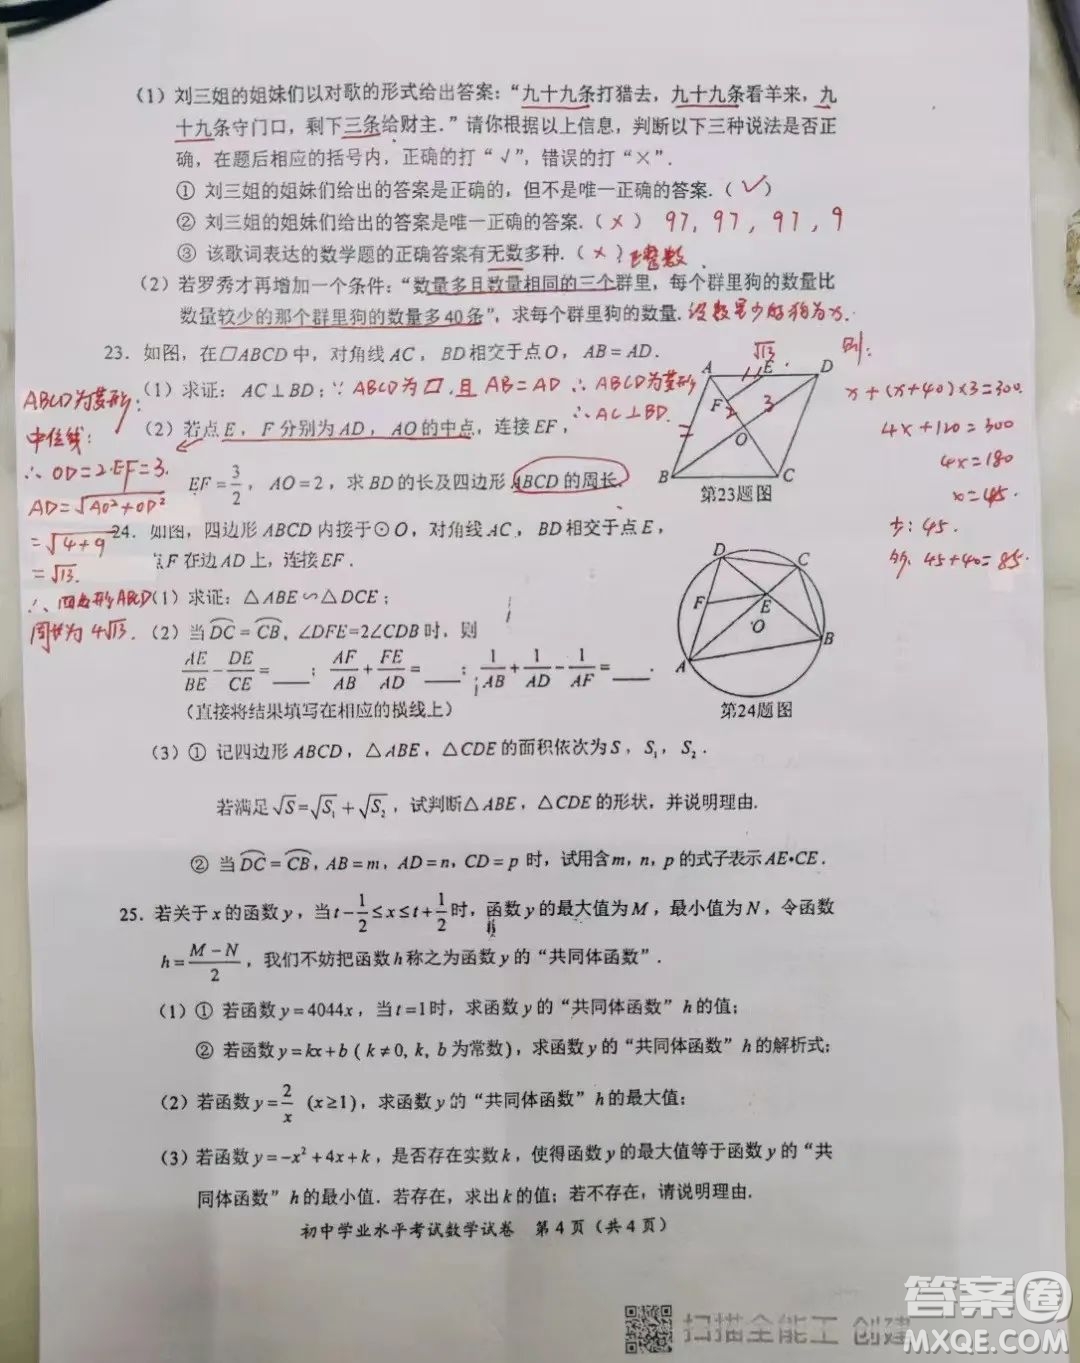 (1) 刘三姐的姐妹们以对歌的形式给出答案：“九十九条打猎去，九十九条看羊来，九
十九条守门口，剩下三条给财主．”请你根据以上信息，判断以下三种说法是否正
确，在题后相应的括号内，正确的打“√”，错误的打“×”．
① 刘三姐的姐妹们给出的答案是正确的，但不是唯一正确的答案．(√)
② 刘三姐的姐妹们给出的答案是唯一正确的答案．(×) 97, 97, 97, 9
③ 该歌词表达的数学题的正确答案有无数多种．(×) 正整数．
(2) 若罗秀才再增加一个条件：“数量多且数量相同的三个群里，每个群里狗的数量比
数量较少的那个群里狗的数量多40条”，求每个群里狗的数量．设数量少的狗为x．
则：
x+(x+40)×3=300．
4x+120=300
4x=180
x=45．
少：45．
多：45+40=85．
23．如图，在□ABCD中，对角线AC，BD相交于点O，AB=AD．
(1) 求证：AC⊥BD；∵ ABCD为□ 且 AB=AD ∴ ABCD为菱形
∴ AC⊥BD．
(2) 若点E，F分别为AD，AO的中点，连接EF，
EF=3/2，AO=2，求BD的长及四边形ABCD的周长．
ABCD为菱形
中位线：
∴ OD=2·EF=3．
AD=√(AO²+OD²)
=√(4+9)
=√13．
∴ 四边形ABCD
周长为 4√13．
√13
A E D
F 2 3
O
B C
第23题图
24．如图，四边形ABCD内接于⊙O，对角线AC，BD相交于点E，
点F在边AD上，连接EF．
(1) 求证：△ABE∽△DCE；
(2) 当DC⌒=CB⌒，∠DFE=2∠CDB时，则
AE/BE−DE/CE=____；AF/AB+FE/AD=____；1/AB+1/AD−1/AF=____．
（直接将结果填写在相应的横线上）
D C
F E
O B
A
第24题图
(3) ① 记四边形ABCD，△ABE，△CDE的面积依次为S，S₁，S₂．
若满足√S=√S₁+√S₂，试判断△ABE，△CDE的形状，并说明理由．
② 当DC⌒=CB⌒，AB=m，AD=n，CD=p时，试用含m，n，p的式子表示AE•CE．
25．若关于x的函数y，当t−1/2≤x≤t+1/2时，函数y的最大值为M，最小值为N，令函数
h=(M−N)/2，我们不妨把函数h称之为函数y的“共同体函数”．
(1) ① 若函数y=4044x，当t=1时，求函数y的“共同体函数”h的值；
② 若函数y=kx+b（k≠0，k，b为常数），求函数y的“共同体函数”h的解析式；
(2) 若函数y=2/x (x≥1)，求函数y的“共同体函数”h的最大值；
(3) 若函数y=−x²+4x+k，是否存在实数k，使得函数y的最大值等于函数y的“共
同体函数”h的最小值．若存在，求出k的值；若不存在，请说明理由．
初中学业水平考试数学试卷 第4页（共4页）
扫描全能王 创建
答案圈
MXQE.COM